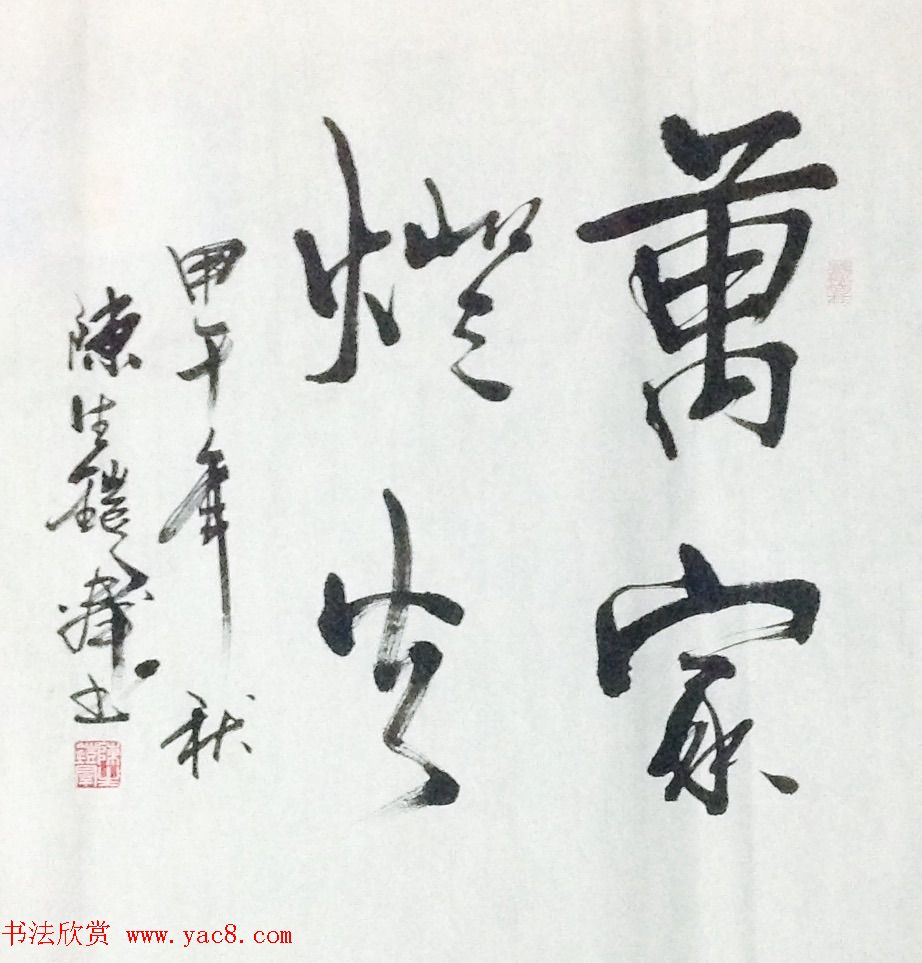 萬家
燈火
甲午年秋
陳生鎧擇書
书法欣赏 www.yac8.com